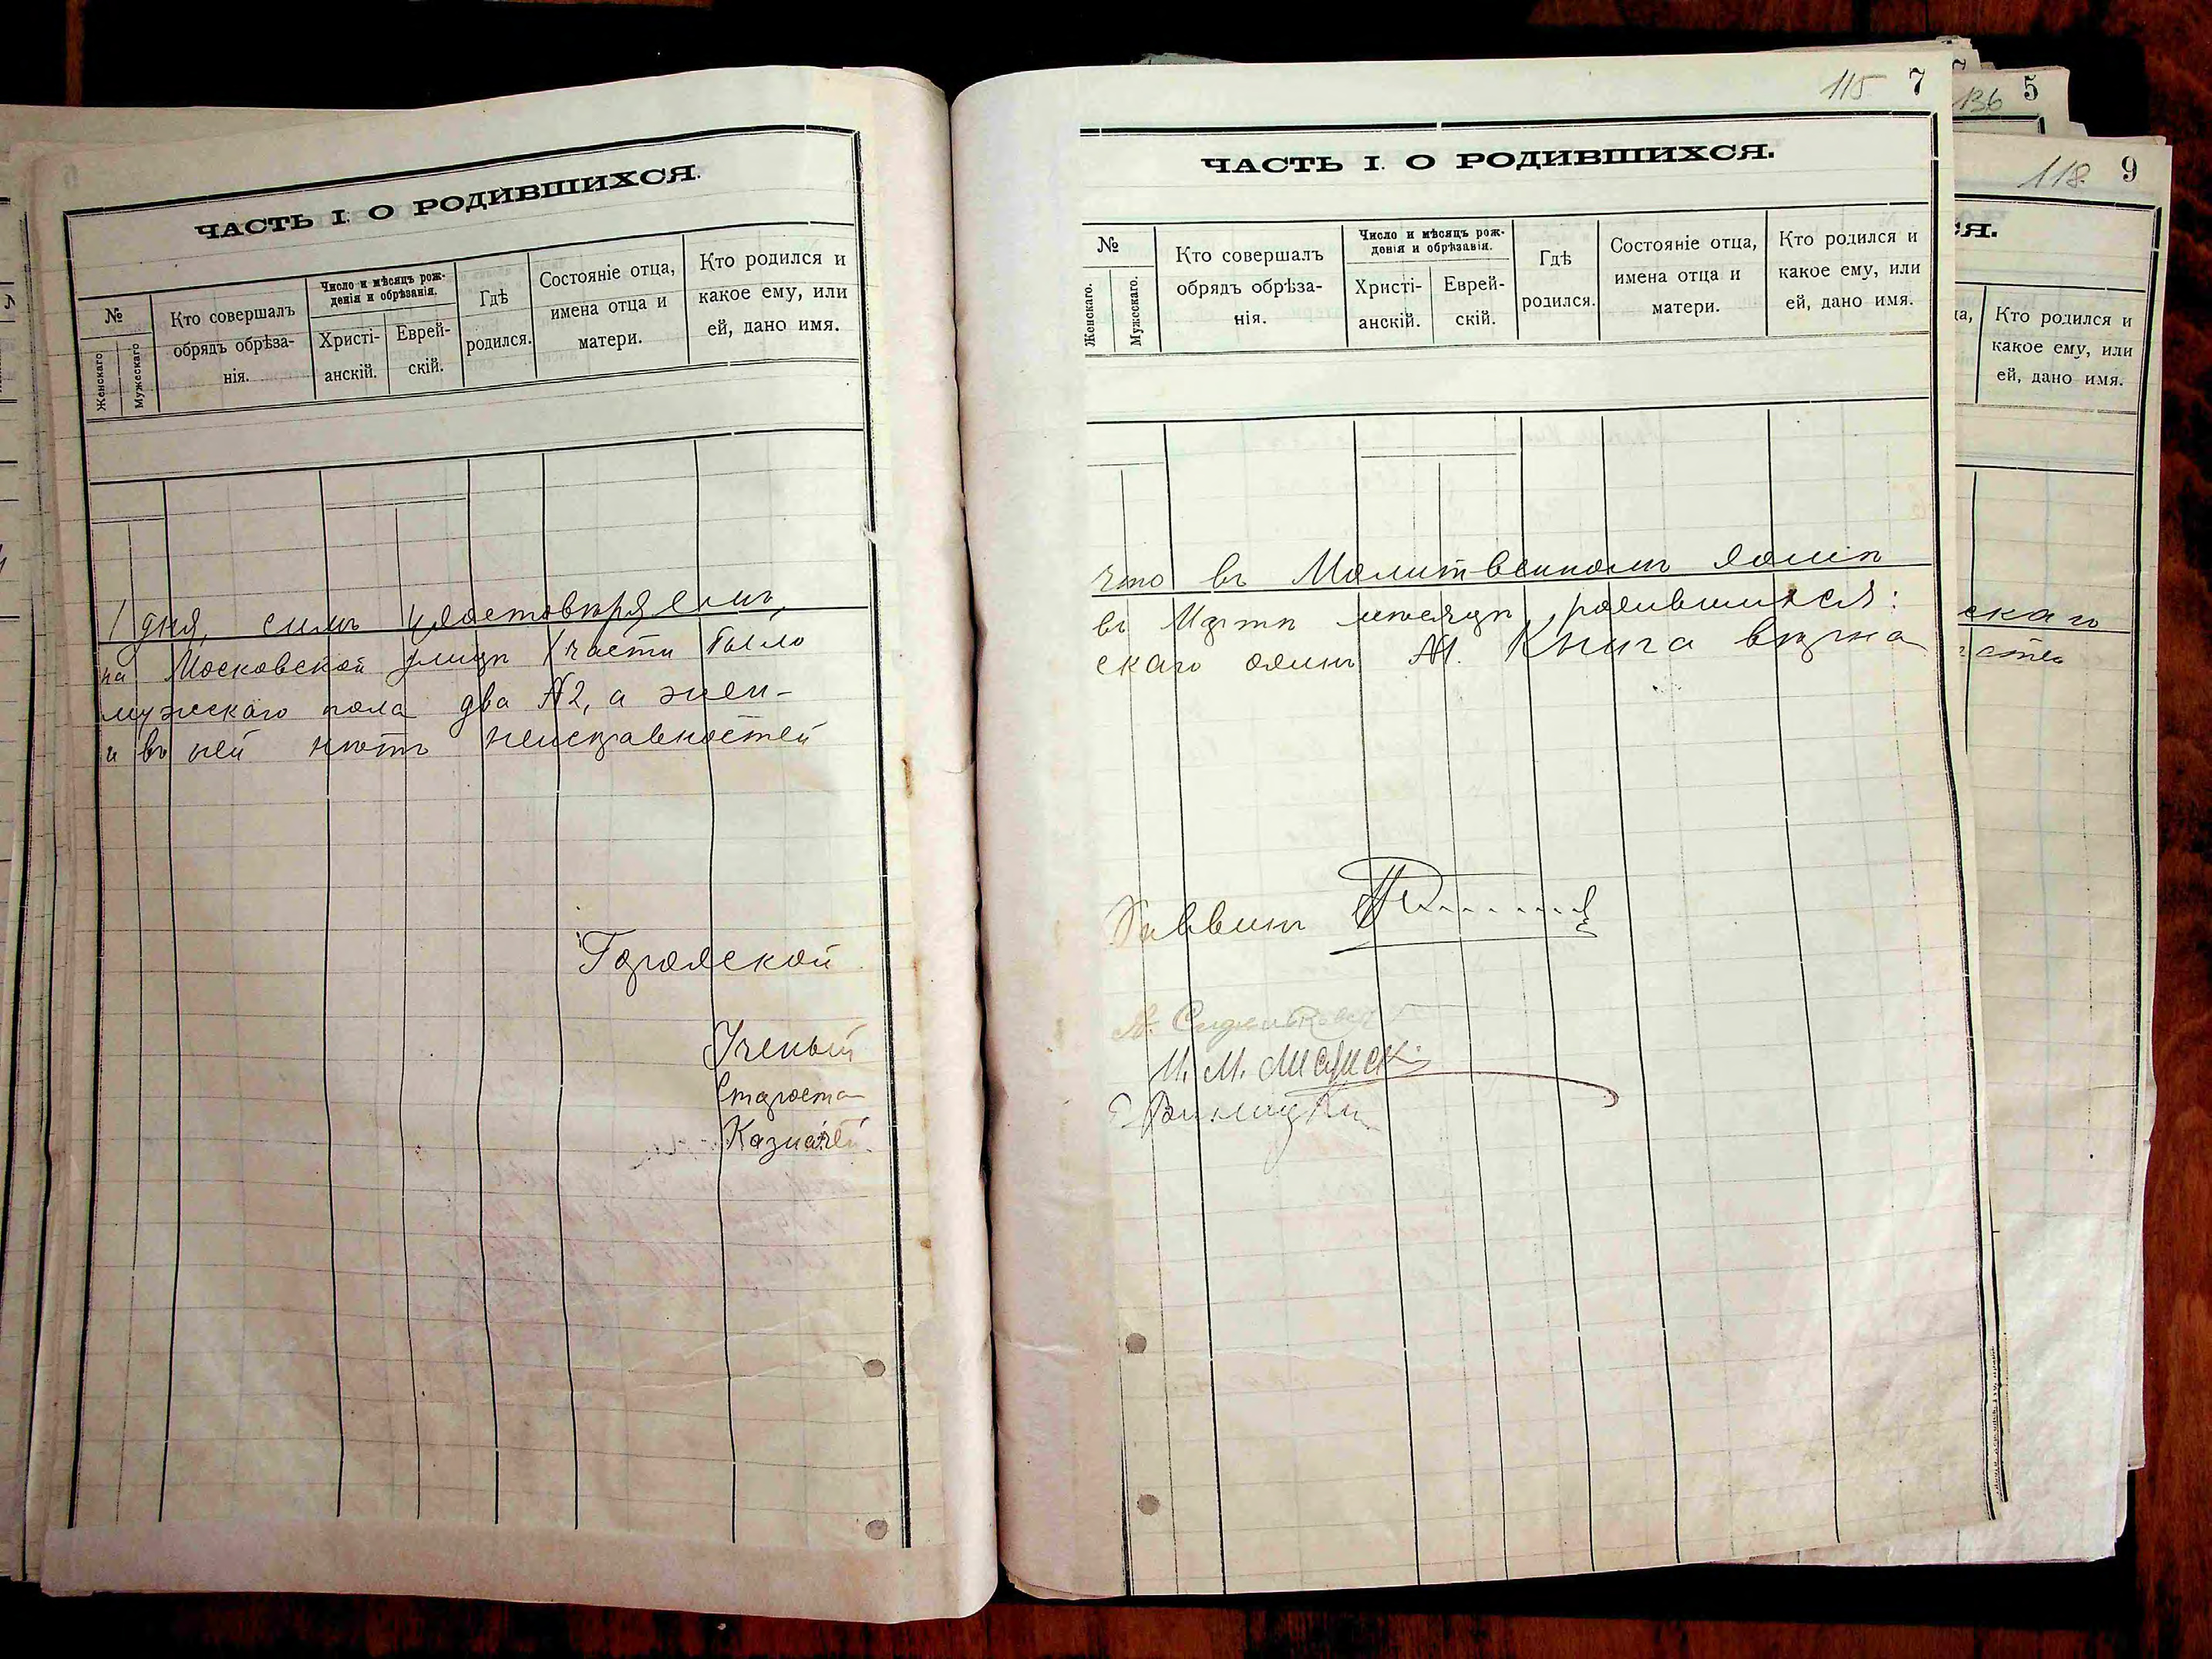 ЧАСТЬ I. О РОДИВШИХСЯ.
№
Женскаго
Мужескаго
Кто совершалъ
обрядъ обрѣза-
нія.
Число и мѣсяцъ рож-
денія и обрѣзанія.
Христі-
анскій.
Еврей-
скій.
Гдѣ
родился.
Состояніе отца,
имена отца и
матери.
Кто родился и
какое ему, или
ей, дано имя.
1 дня, симъ удостовѣряемъ,
на Московской улицѣ 1 части было
мужескаго пола два №2, а жен-
и въ ней нѣтъ неисправностей
Городской
Ученый
Староста
Казначей
115 7
ЧАСТЬ I. О РОДИВШИХСЯ.
№
Женскаго.
Мужескаго.
Кто совершалъ
обрядъ обрѣза-
нія.
Число и мѣсяцъ рож-
денія и обрѣзанія.
Христі-
анскій.
Еврей-
скій.
Гдѣ
родился.
Состояніе отца,
имена отца и
матери.
Кто родился и
какое ему, или
ей, дано имя.
что въ Молитвенномъ домѣ
въ Мартѣ мѣсяцѣ родившихся:
скаго одинъ №1. Книга вѣрна
Раввинъ
136 5
118 9
ся.
Кто родился и
какое ему, или
ей, дано имя.
скаго